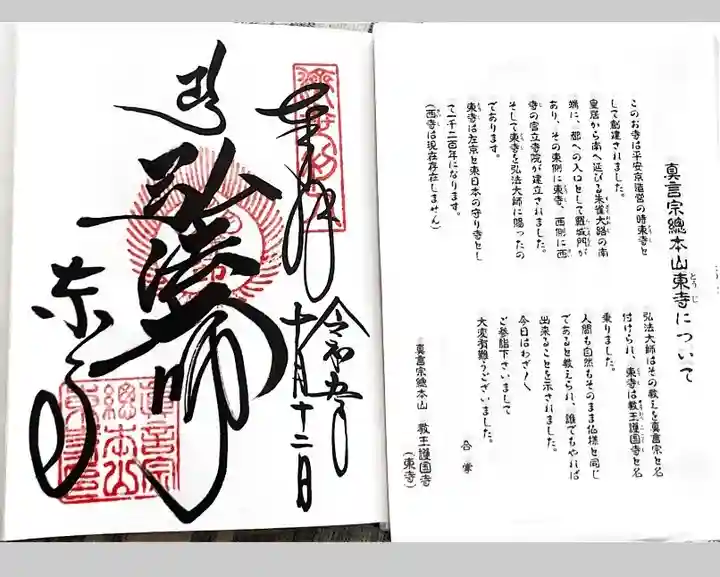 真言宗總本山東寺について
このお寺は平安京造営の時東寺と
して創建されました。
皇居から南へ延びる朱雀大路の南
端に、都への入口として羅城門が
あり、その東側に東寺、西側に西
寺の官立寺院が建立されました。
そして東寺を弘法大師に賜ったの
であります。
東寺は左京と東日本の守り寺とし
て一千二百年になります。
(西寺は現在存在しません)
弘法大師はその教えを真言宗と名
付けられ、東寺は教王護国寺と名
乗りました。
人間も自然もそのまま仏様と同じ
であると教えられ、誰でもやれば
出来ることを示されました。
今日はわざ〱
ご参詣下さいまして
大変有難うございました。
合掌
真言宗總本山 教王護国寺
(東寺)
奉拝
令和五年
十月十二日
弘法大師
東寺